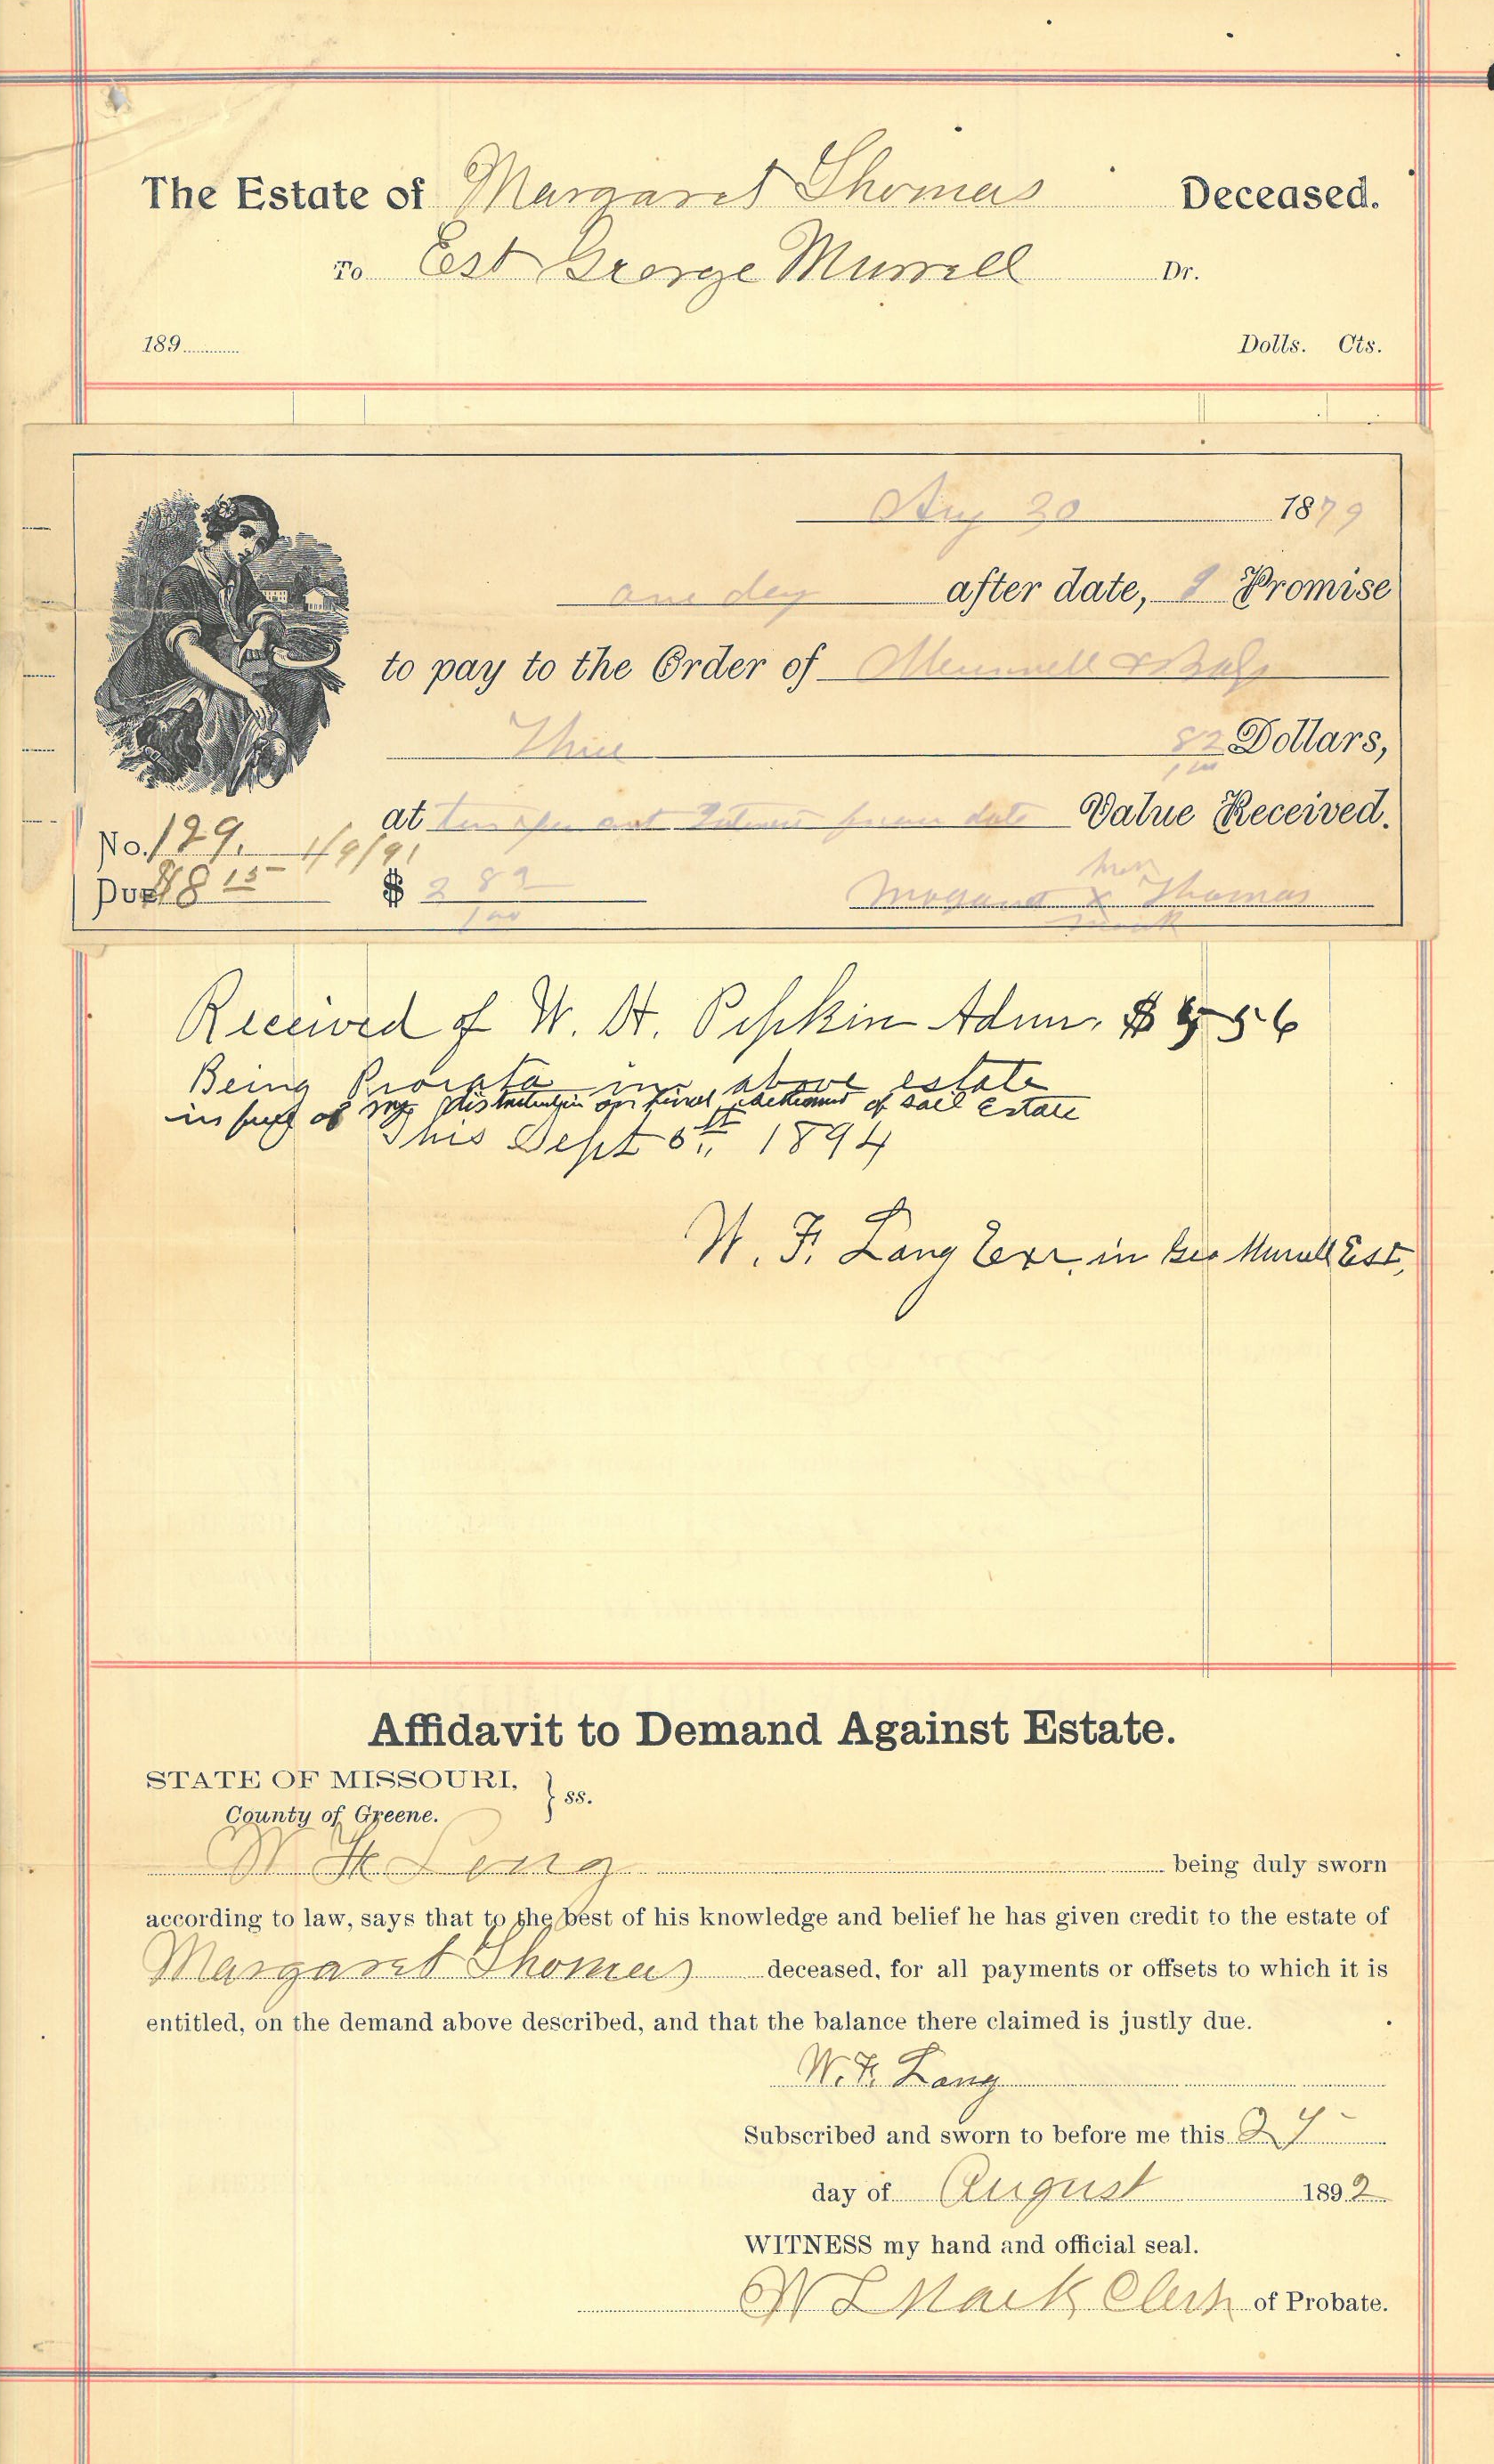 The Estate of Margaret Thomas Deceased.
To Est George Murrell Dr.
189 Dolls. Cts.
Aug 30 1879
one day after date, I Promise
to pay to the Order of Murrell &
Three 82/100 Dollars,
at ten per cent Interest from date Value Received.
No. 129. 1/9/91
Due $8 15 $ 3 82/100
her
Margaret x Thomas
mark
Received of W. H. Pipkin Admr. $ 56
Being Prorata in above estate
in full of my distribution on final settlement of said Estate
This Sept 6th 1894
W. F. Lang Exr. in Geo Murrell Est.
Affidavit to Demand Against Estate.
STATE OF MISSOURI,
County of Greene. } ss.
W F Lang being duly sworn
according to law, says that to the best of his knowledge and belief he has given credit to the estate of
Margaret Thomas deceased, for all payments or offsets to which it is
entitled, on the demand above described, and that the balance there claimed is justly due.
W. F. Lang
Subscribed and sworn to before me this 27
day of August 1892
WITNESS my hand and official seal.
W L Mack Clerk of Probate.